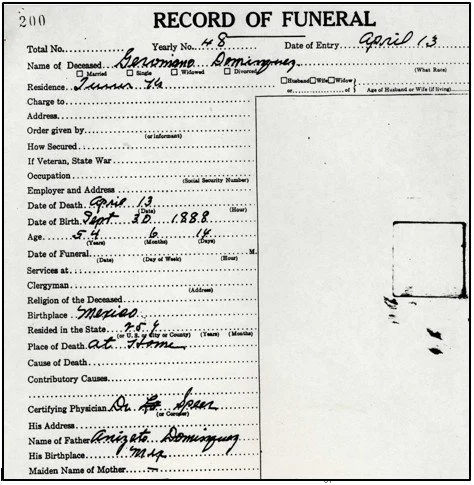 200
RECORD OF FUNERAL
Total No. Yearly No. 48 Date of Entry April 13
Name of Deceased Geronimo Dominguez
Married Single Widowed Divorced (What Race)
Residence Turner Ks Husband Wife Widow
or of Age of Husband or Wife (if living)
Charge to
Address
Order given by
(or informant)
How Secured
If Veteran, State War
Occupation
(Social Security Number)
Employer and Address
Date of Death April 13
(Date) (Hour)
Date of Birth Sept 30 1888
Age 54 6 14
(Years) (Months) (Days)
Date of Funeral M.
(Date) (Day of Week) (Hour)
Services at
Clergyman
(Address)
Religion of the Deceased
Birthplace Mexico
Resided in the State 25 y
(or U. S. or City or County) (Years) (Months)
Place of Death At Home
Cause of Death
Contributory Causes
Certifying Physician Dr Speer
(or Coroner)
His Address
Name of Father Anizeto Dominguez
His Birthplace Mex
Maiden Name of Mother